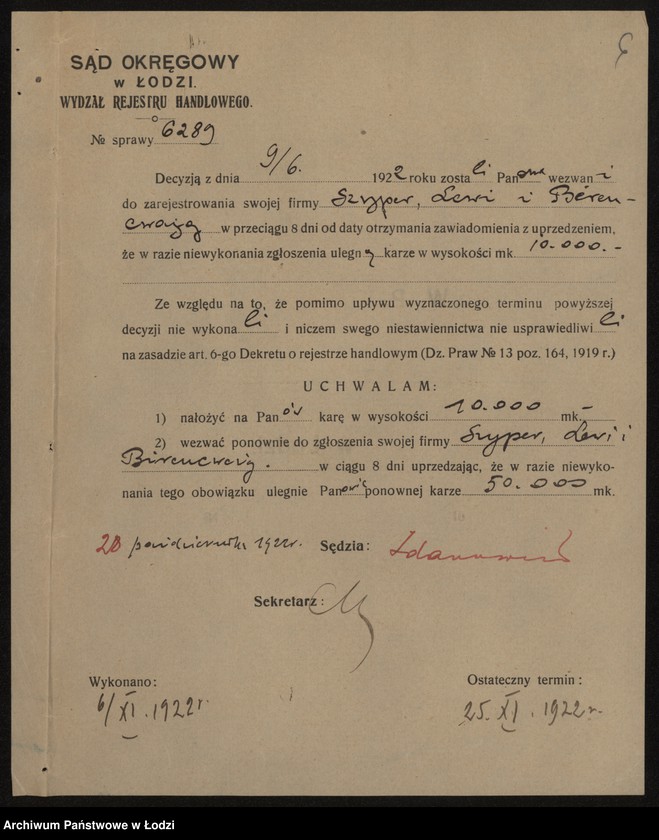 6
SĄD OKRĘGOWY
W ŁODZI.
WYDZIAŁ REJESTRU HANDLOWEGO.
№ sprawy 6289
Decyzją z dnia 9/6. 1922 roku zostali Panowie wezwani
do zarejestrowania swojej firmy Szyper, Lewi i Biren-
cwajg w przeciągu 8 dni od daty otrzymania zawiadomienia z uprzedzeniem,
że w razie niewykonania zgłoszenia ulegną karze w wysokości mk. 10.000.-
Ze względu na to, że pomimo upływu wyznaczonego terminu powyższej
decyzji nie wykonali i niczem swego niestawiennictwa nie usprawiedliwili
na zasadzie art. 6-go Dekretu o rejestrze handlowym (Dz. Praw № 13 poz. 164, 1919 r.)
UCHWALAM:
1) nałożyć na Panów karę w wysokości 10.000 mk.-
2) wezwać ponownie do zgłoszenia swojej firmy Szyper, Lewi i
Birencweig. w ciągu 8 dni uprzedzając, że w razie niewyko-
nania tego obowiązku ulegnie Panowie ponownej karze 50.000 mk.
28 października 1922r. Sędzia:
Sekretarz:
Wykonano: Ostateczny termin:
6/XI.1922r. 25.XI.1922r.
Archiwum Państwowe w Łodzi